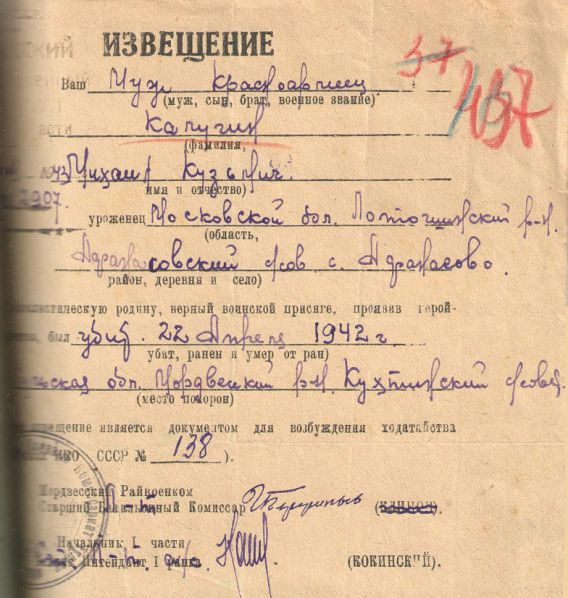 ИЗВЕЩЕНИЕ
37
Ваш Муж Красноармеец
(муж, сын, брат, военное звание)
Калугин
(фамилия,
Михаил Кузьмич.
имя и отчество)
1907.
уроженец Московской обл. Лотошинский р-н.
(область,
с.
район, деревня и село)
листическую родину, верный воинской присяге, проявив герой-
был убит. 22 Апреля 1942 г
убит, ранен и умер от ран)
ская обл. Мордвеский р-н.
(место похорон)
щение является документом для возбуждения ходатайства
НКО СССР № 138 ).
Мордвесский Райвоенком
Старший Батальонный Комиссар
Начальник I части
Интендант I ранга (КОКИНСКИЙ).